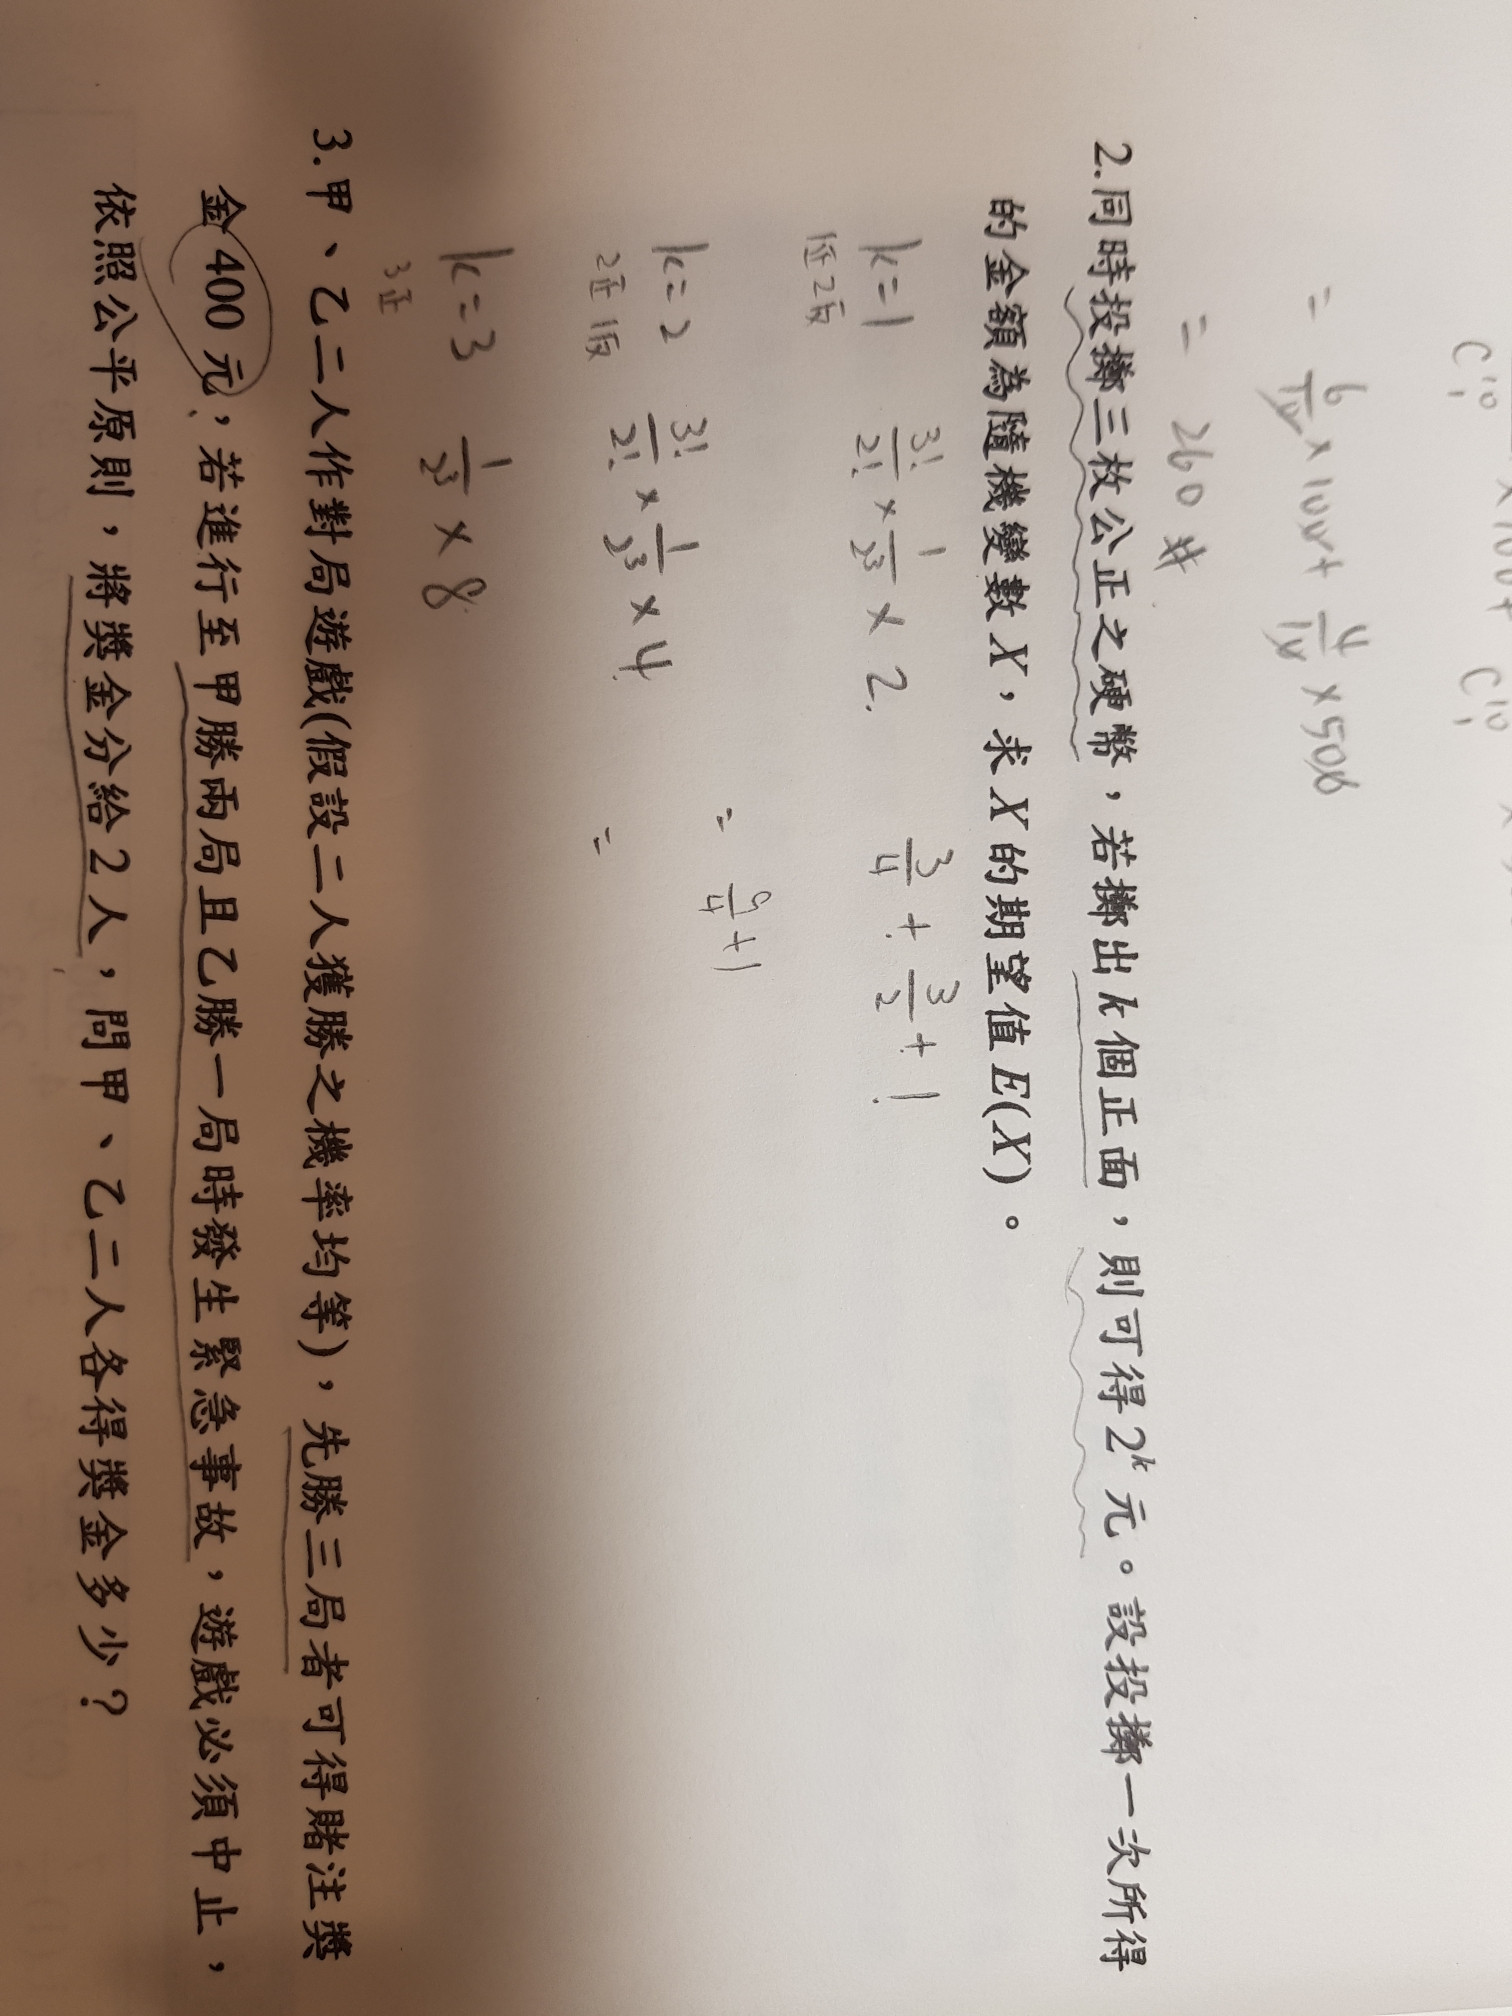 C¹⁰₁ ×100+ C¹⁰₁
= 6/10 × 100 + 4/10 × 500
= 260 #
2.同時投擲三枚公正之硬幣，若擲出k個正面，則可得2ᵏ元。設投擲一次所得
的金額為隨機變數X，求X的期望值E(X)。
k=1 3!/2! × 1/2³ × 2. 3/4 + 3/2 + 1
1正2反
= 9/4+1
k=2 3!/2! × 1/2³ × 4 =
2正1反
k=3 1/2³ × 8
3正
3.甲、乙二人作對局遊戲(假設二人獲勝之機率均等)，先勝三局者可得賭注獎
金400元，若進行至甲勝兩局且乙勝一局時發生緊急事故，遊戲必須中止，
依照公平原則，將獎金分給2人，問甲、乙二人各得獎金多少？